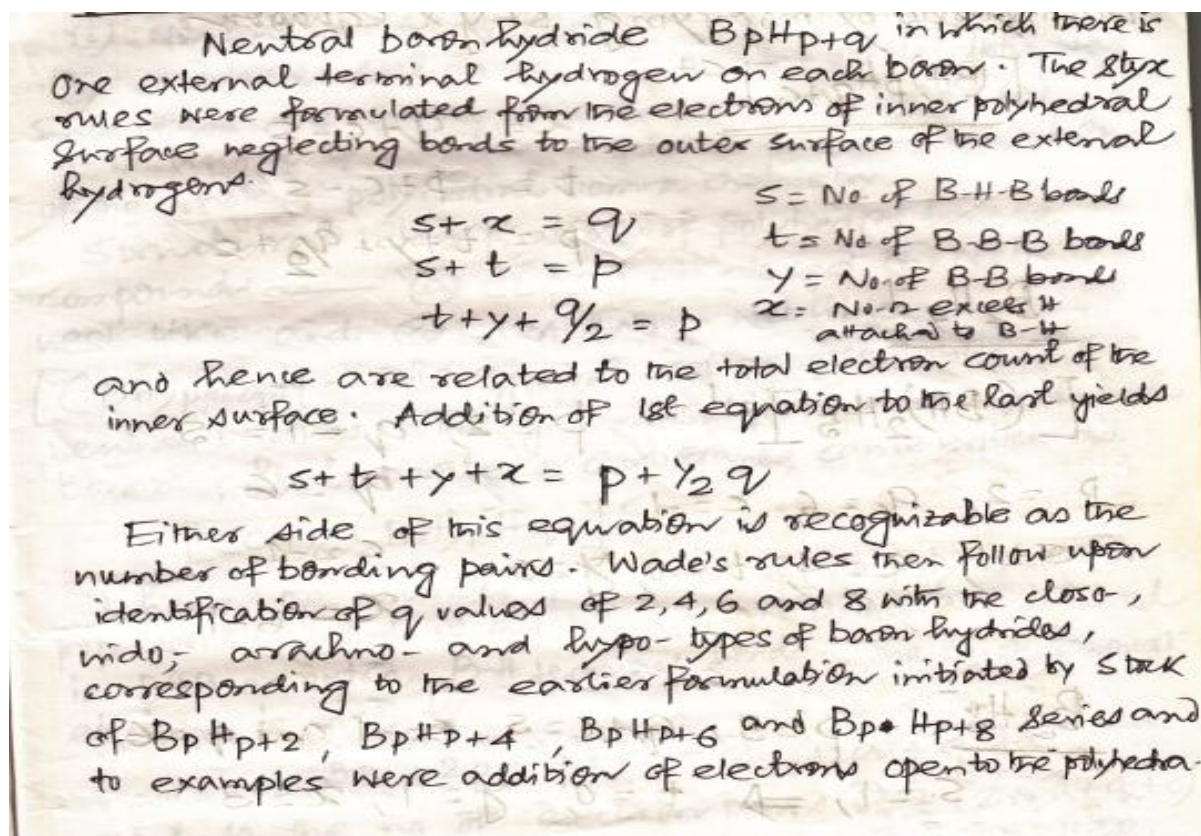 Neutral boron hydride BpHp+q in which there is
one external terminal hydrogen on each boron. The styx
rules were formulated from the electrons of inner polyhedral
surface neglecting bonds to the outer surface of the external
hydrogens.
s = No of B-H-B bonds
s + x = q
t = No of B-B-B bonds
s + t = p
y = No of B-B bond
t + y + q/2 = p
x = No. excess H
attached to B-H
and hence are related to the total electron count of the
inner surface. Addition of 1st equation to the last yields
s + t + y + x = p + 1/2 q
Either side of this equation is recognizable as the
number of bonding pairs. Wade's rules then follow upon
identification of q values of 2,4,6 and 8 with the closo-,
nido-, arachno- and hypo- types of boron hydrides,
corresponding to the earlier formulation initiated by Stock
of BpHp+2, BpHp+4, BpHp+6 and BpHp+8 series and
to examples were addition of electrons open to the polyhedra.